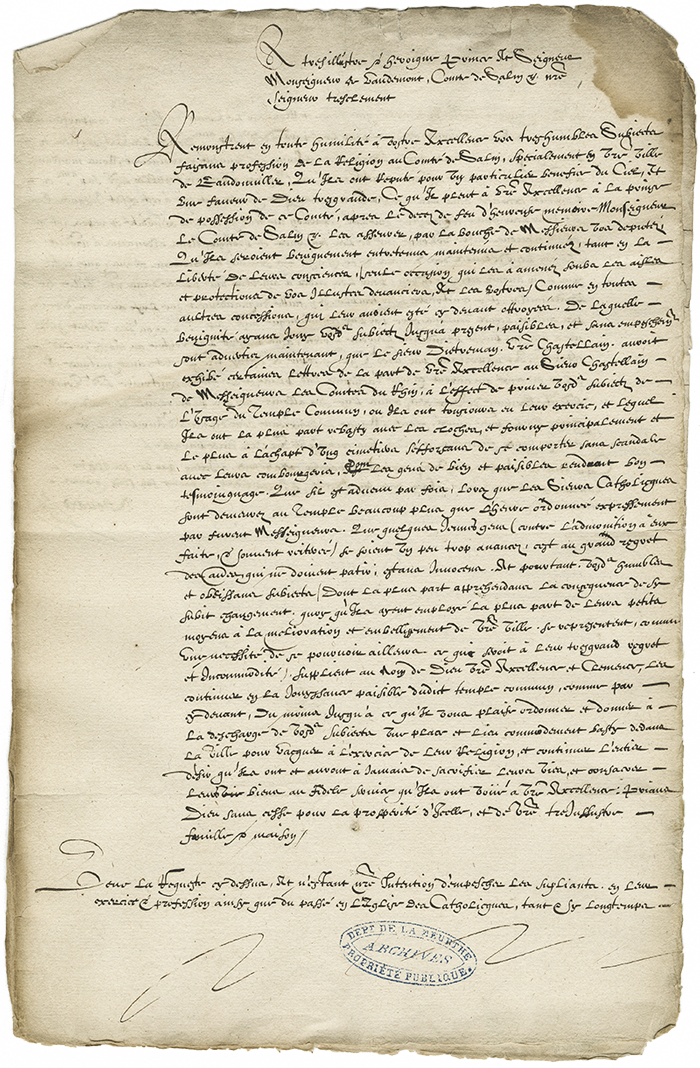 A tresillustre & heroique Prince et Seigneur
Monseigneur de Vaudemont, Comte de Salm &. nre
Seigneur tresclement
Remonstrent en toute humilité à Vostre Excellence voz treshumbles Subiectz
faisans profession de la Religion au Comté de Salm, specialement en vre ville
de Baudonviller, Qu'ilz ont reputé pour un particulier benefice du Ciel, et
une faveur de Dieu tresgrande, Ce qu'il pleut à vre Excellence à la prinse
de possession de ce Comté, apres le decez de feu d'heureuse memoire Monseigneur
le Comte de Salm &. les asseurer, par la bouche de Messieurs voz deputez
Qu'ilz seroient benignement entretenus maintenus et continuez, tant en la
liberté de leurs consciences, (seule occasion qui les à amenez soubz les aisles
et protections de voz Illustres devanciers, et les vostres) Comme en toutes
aultres concessions, qui leur avoient esté cy devant ottroyees. De laquelle
benignité ayans jouy vosdz Subiectz jusqua present, paisibles, et sans empeschemt
sont advertis maintenant, que le sieur Dietreman vre Chastellain auroit
exhibé certaines lettres de la part de vre Excellence au Sieur Chastellain
de Messeigneurs les Comtes du Rhin, à l'effect de priver vosdz Subiectz de
l'usage du Temple Commun, ou ilz ont tousjours eu leur exercice, et lequel
ilz ont la plus part rebasty avec les cloches, et fourny principalement et
le plus à l'achapt d'ung cimetiere s'efforçans de se comporter sans scandale
avec leurs combourgeois, Dont les gens de bien et paisibles rendront bon
tesmoignage. Que sil est advenu par fois, lors que les Sieurs Catholicques
sont demeurez au Temple beaucoup plus que l'heure ordonnée expressement
par feurent Messeigneurs. Que quelques jeunes gens (contre l'admonition à eux
faite, & souvent reiteree) se soient un peu trop avancez, c'est au grand regret
des autres qui ne doivent patir, estans Innocens. Et pourtant vosdz humbles
et obeissans subiectz (Dont la plus part apprehendans la consequence de sy
subit changement, quoy qu'ilz ayent employé la plus part de leurs petitz
moyens à la melioration et embellissement de vre ville. se representent, comme
une necessité, de se pourvoir ailleurs ce qui seroit à leur tresgrand regret
et Incommodité) supplient au Nom de Dieu vre Excellence et Clemence, les
continuer en la jouyssance paisible dudict temple commun, comme par
cy devant, Du moins jusqu'à ce qu'il vous plaise ordonner et donner à
la descharge de vosdz Subiectz une place et lieu commodement basty dedans
la ville pour vacquer à l'exercice de leur Religion, et continuer l'entier
desir qu'ilz ont et auront à jamais de sacrifier leurs vies, et consacrer
leurs biens au fidele service qu'ilz ont voüé à vre Excellence. Prians
Dieu sans cesse pour la prosperité d'Icelle, et de vre tresillustre
famille & maison /
Veue la Requeste cy dessus, Et n'estant nre Intention d'empescher les suplians en leur
exercice & profession ainsy que du passé en l'Eglise des Catholicques, tant & sy longtemps
DEPT DE LA MEURTHE
ARCHIVES
PROPRIÉTÉ PUBLIQUE.